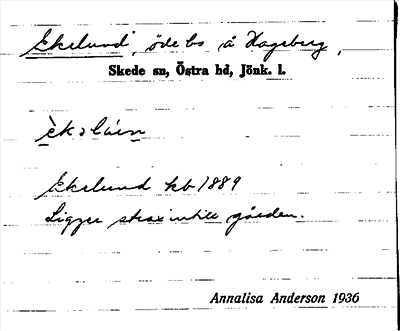 Ekelund, öde bs å Hagaberg,
Skede sn, Östra hd, Jönk. l.
Ekelund kb 1889
Ligger strax intill gården.
Annalisa Anderson 1936